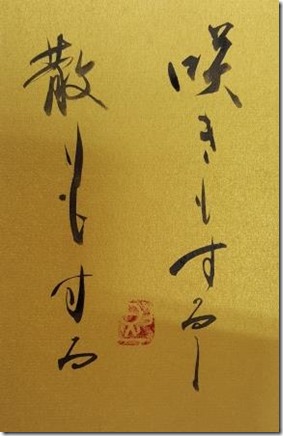 咲きもするし
散りもする